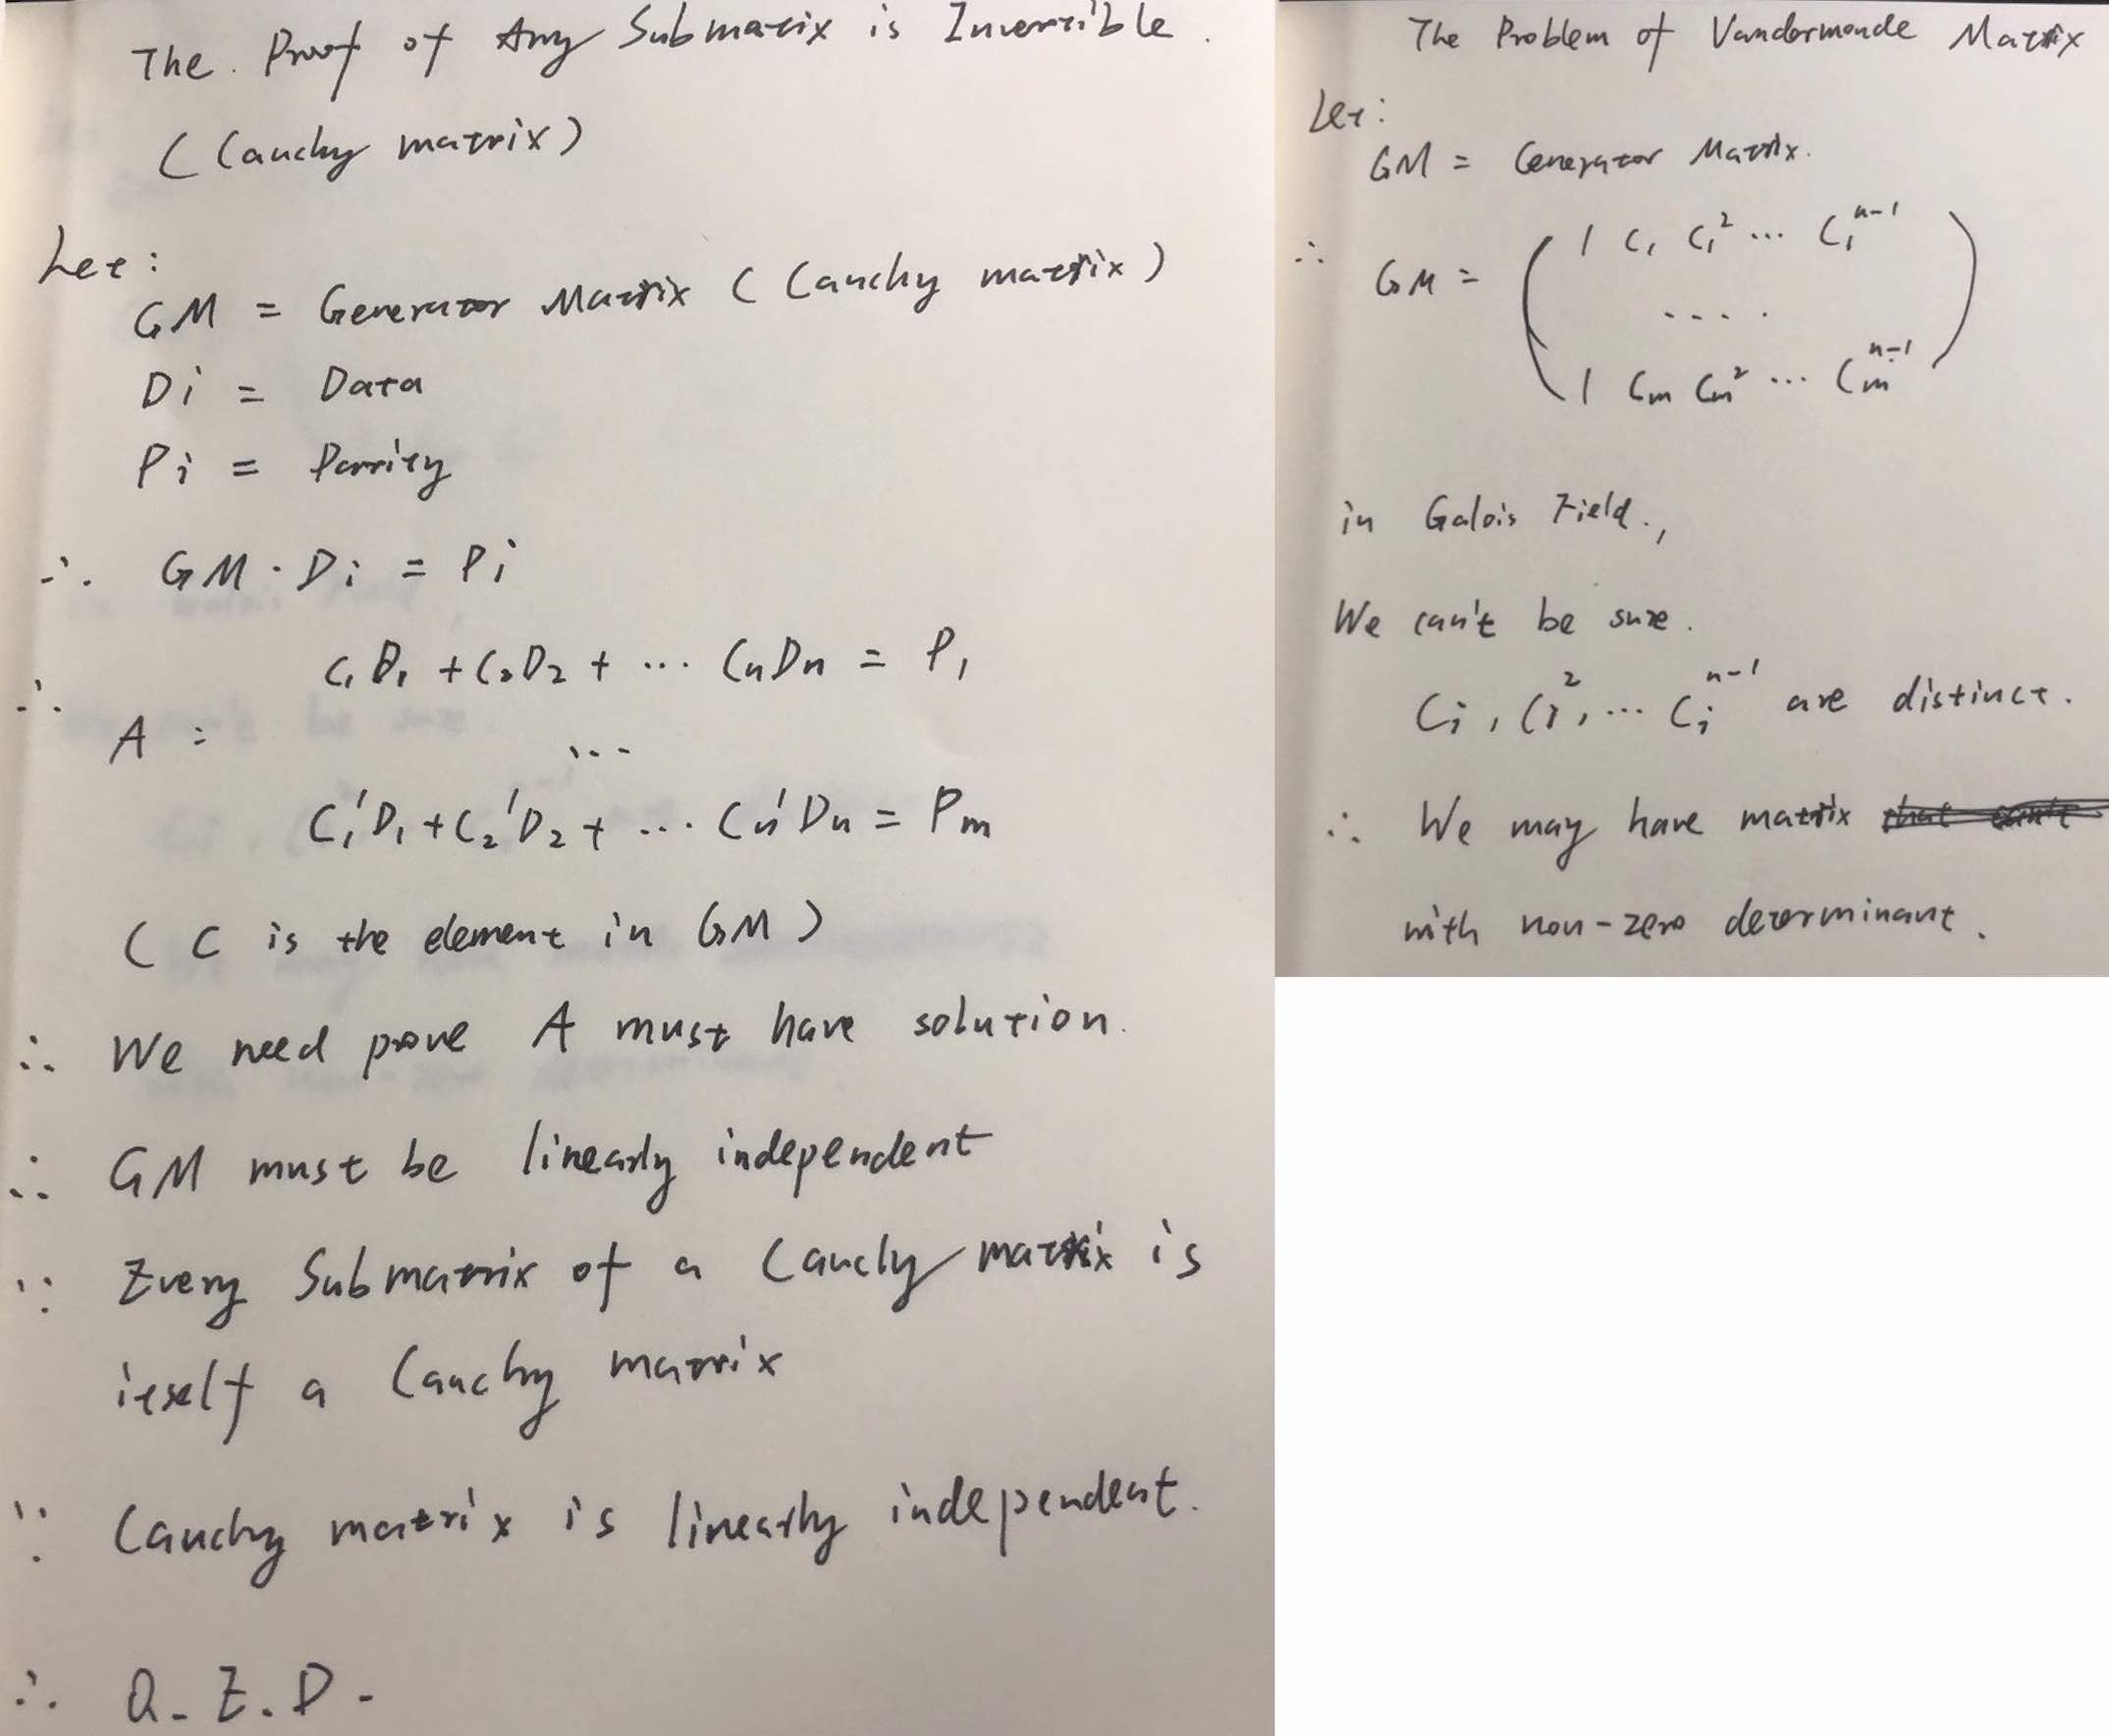 The Proof of Any Submatrix is Invertible.
(Cauchy matrix)
Let:
GM = Generator Matrix (Cauchy matrix)
Di = Data
Pi = Parrity
∴ GM · Di = Pi
∴ C₁D₁ + C₂D₂ + ... CnDn = P₁
A = ...
C₁'D₁ + C₂'D₂ + ... Cn'Dn = Pm
(C is the element in GM)
∴ We need prove A must have solution.
∴ GM must be linearly independent
∵ Every Submatrix of a Cauchy matrix is
itself a Cauchy matrix
∵ Cauchy matrix is linearly independent.
∴ Q.E.D.
The Problem of Vandermonde Matrix
Let:
GM = Generator Matrix.
∴ GM = ( 1 C₁ C₁² ... C₁ⁿ⁻¹
.....
1 Cm Cm² ... Cmⁿ⁻¹ )
in Galois Field.,
We can't be sure.
Ci, Ci², ... Ciⁿ⁻¹ are distinct.
∴ We may have matrix that can't
with non-zero determinant.